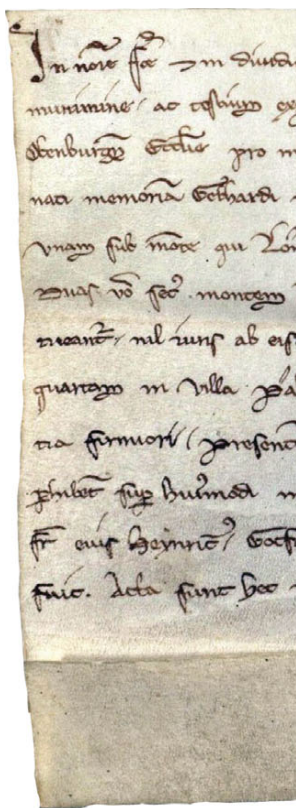 In nōīe sc̄e ⁊ in diuidu
munimine, ac testium ex
Obenburgn̄ Eccl̄ie pro m
nati memoriā Gebhardi
vnam sub mōte qui Lon
Duas v̊o secꝰ montem
neant᷑, nil iuris ab eis
quartam in villa Pab
tia firmiori, presenc̄
ꝑhibēt sup̄ huiꝰmodi
fr̄ eius Heinricꝰ, Gotf
fuit. Acta sunt hec